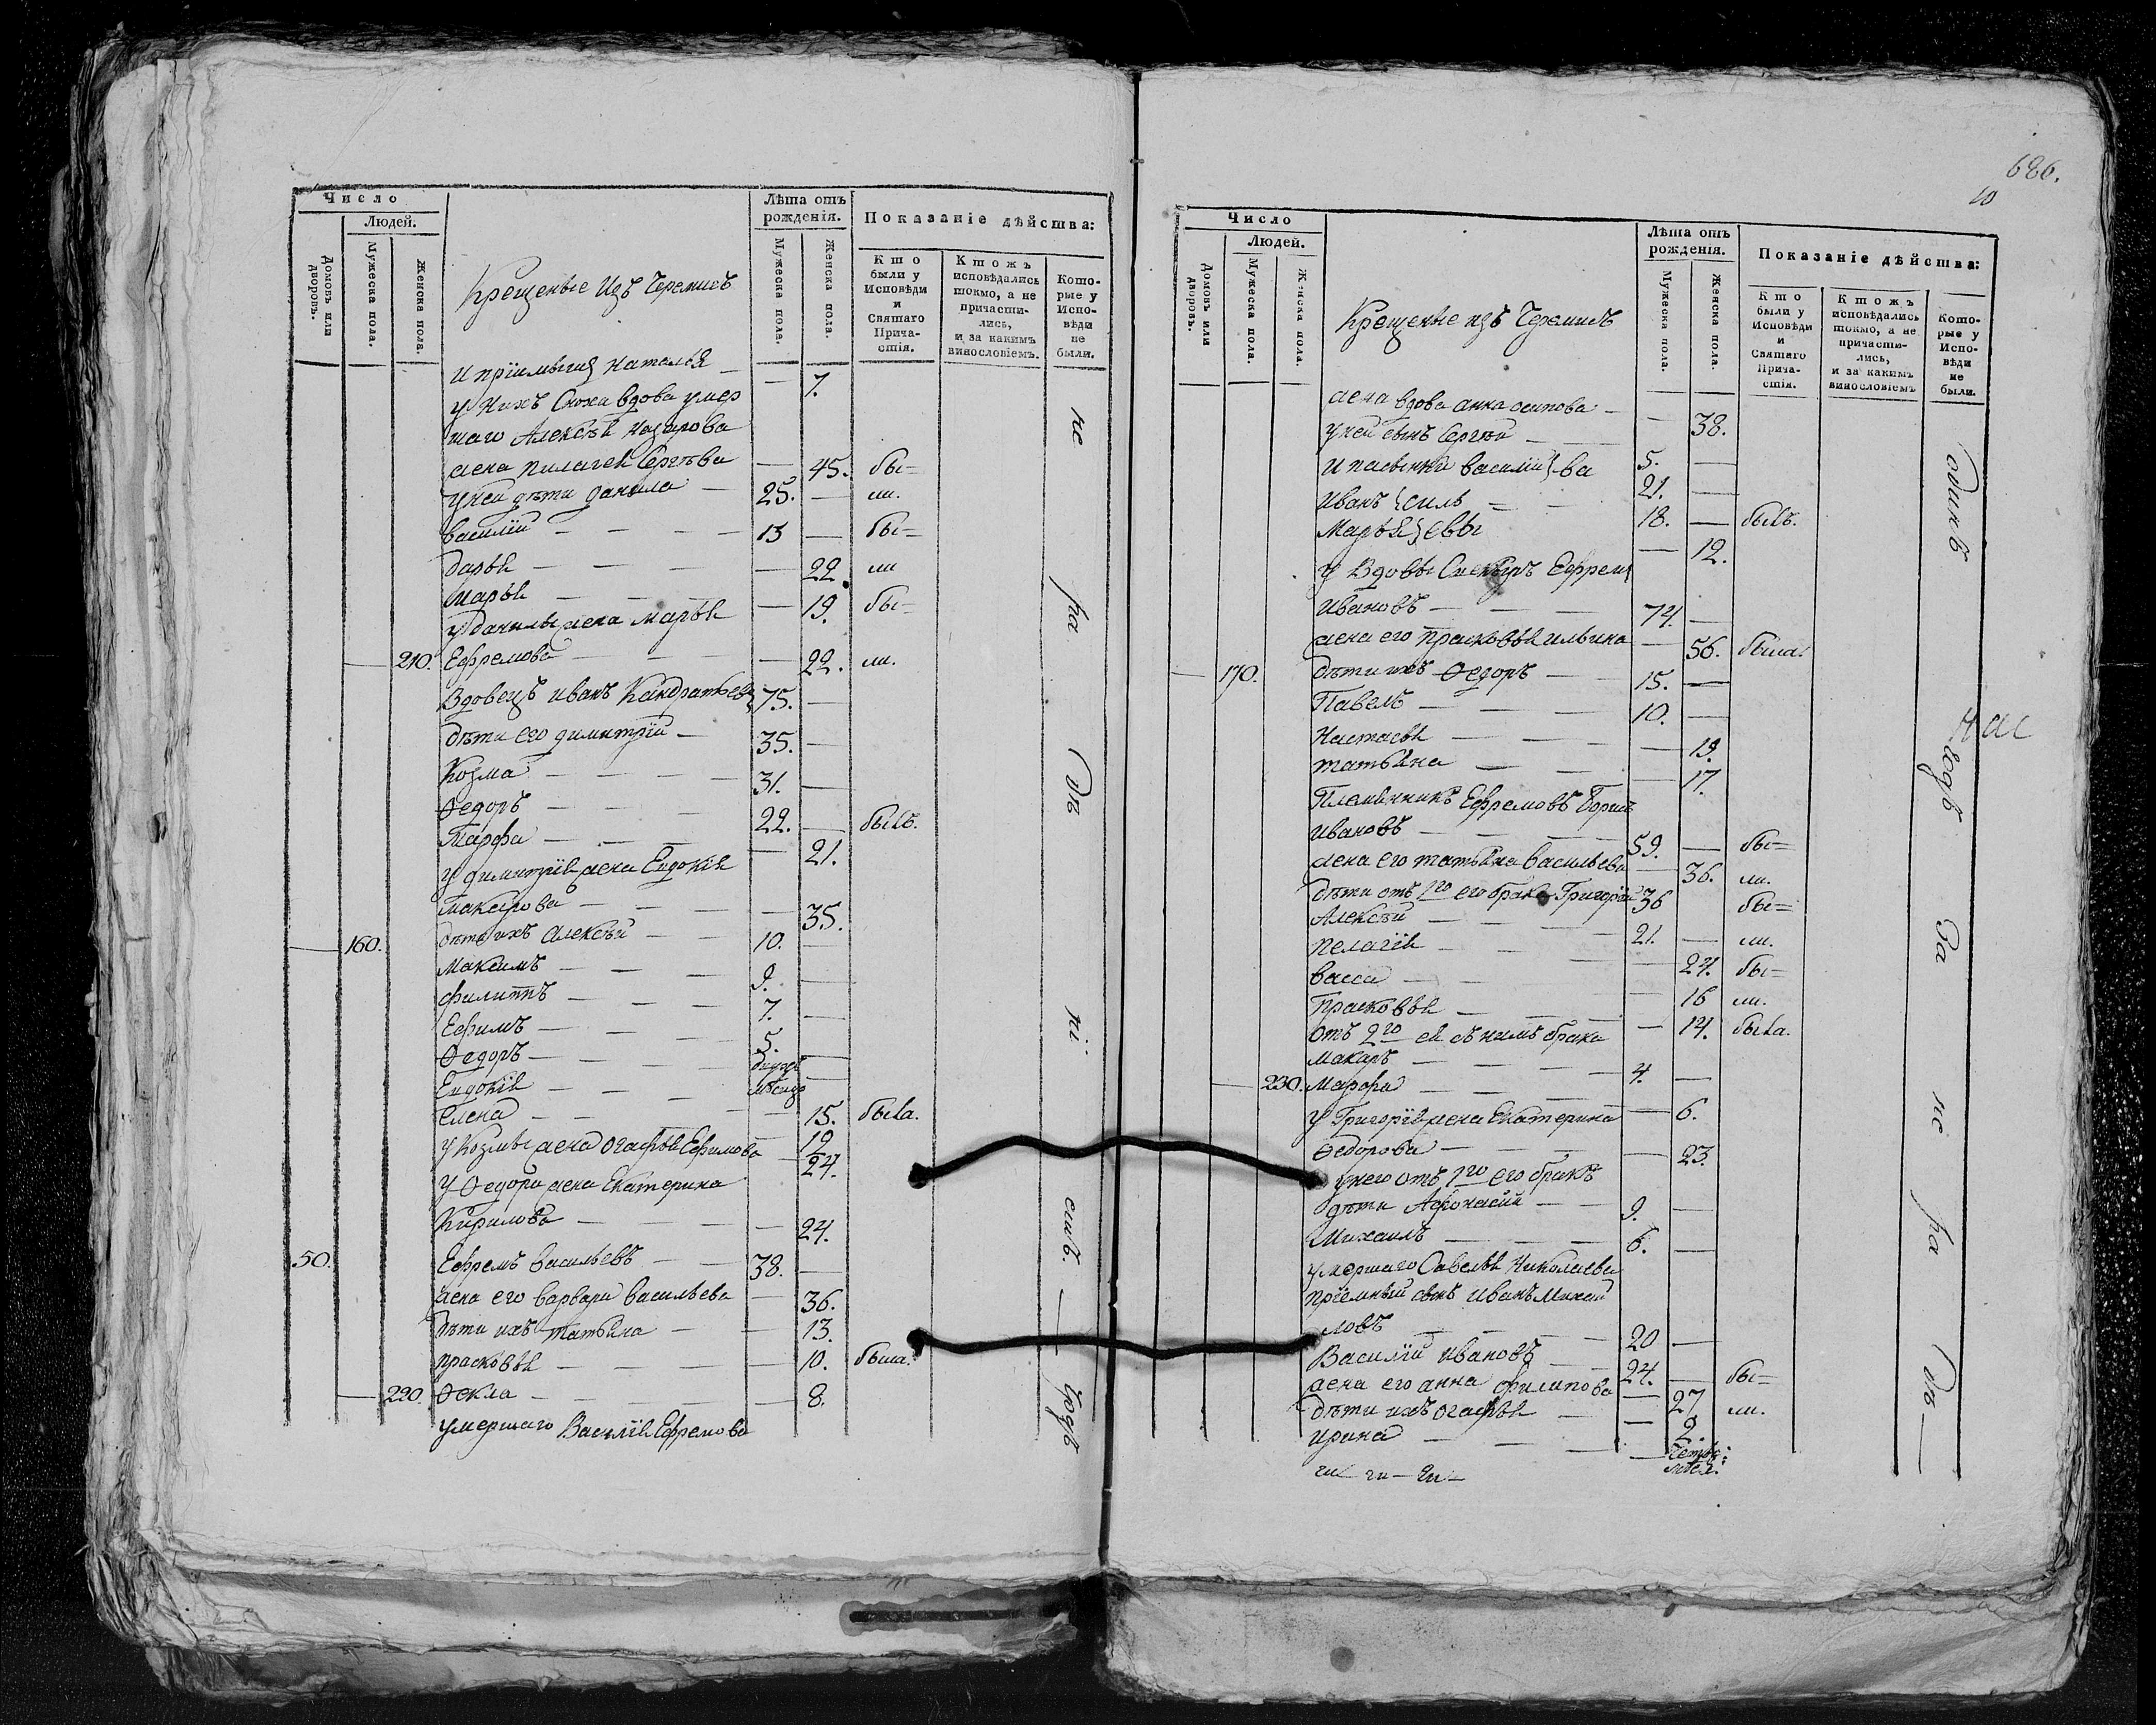 Число
Людей.
Домовъ или дворовъ.
Мужеска пола.
Женска пола.
Лѣта отъ рожденія.
Мужеска пола.
Женска пола.
Показаніе дѣйства:
Кто были у Исповѣди и Святаго Причастія.
Ктожъ исповѣдались токмо, а не причастились, и за какимъ винословіемъ.
Которые у Исповѣди не были.
Крещеные Изъ Черемисъ
и Наталья — 7.
у нихъ Сноха вдова умер
шаго Алексѣя Назарова
жена Пилагея Сергѣва — 45. бы=
у ней дѣти данила — 25. — ли.
василий — 13 — бы=
дарья — 22. ли
Марья — 19. бы=
у данилы жена Марья
210. Ефремова — 22. ли.
Вдовецъ иванъ Кандратьев 75. —
дѣти его димитрий — 35. —
Козма — 31. —
Ѳедоръ — 22. — былъ.
Марфа — 21.
у димитрия жена Евдокия
Макарова — 35.
160. дѣти ихъ Алексѣй — 10. —
Максимъ — 9. —
филиппъ — 7. —
Ефимъ — 5. —
Ѳедоръ —
Евдокия — 15. была.
Елена — 12
у Козмы жена Огафья Ефимова — 24.
у Ѳедора жена Екатерина
Кирилова — 24.
50. Ефремъ васильевъ — 38. —
жена его варвара васильева — 36.
дѣти ихъ татьяна — 13.
прасковья — 10. была.
220. Ѳекла — 8.
умершаго Василия Ефремова
не
ра
дѣ
ні
емъ. —
годъ
686.
10
Число
Людей.
Домовъ или дворовъ.
Мужеска пола.
Женска пола.
Лѣта отъ рожденія.
Мужеска пола.
Женска пола.
Показаніе дѣйства:
Кто были у Исповѣди и Святаго Причастія.
Ктожъ исповѣдались токмо, а не причастились, и за какимъ винословіемъ
Которые у Исповѣди не были.
Крещеные изъ Черемисъ
жена вдова анна осипова — 38.
у ней сынъ Сергѣй — 5. —
и пасынки василий}ва 21. —
иванъ}силь 18. — былъ.
Марья}евы — 12.
у Вдовы Ефрем
ивановъ — 74. —
жена его прасковья ильина — 56. была.
170. дѣти ихъ Ѳедоръ — 15. —
Павелъ — 10. —
Настасья — 19.
татьяна — 17.
Племянникъ Ефремовъ
ивановъ — 59. — бы=
жена его татьяна васильева — 36. ли.
дѣти отъ 1го его брака Григорий 36 бы=
Алексѣй — 21. — ли.
пелагия — 24. бы=
васса — 16 ли.
прасковья — 14. была.
отъ 2го ей съ нимъ брака
макаръ — 4. —
230. Марфа — 6.
у Григория жена Екатерина
Ѳедорова — 23.
у него отъ 1го его бракъ
дѣти Афонасий — 9. —
Михаилъ — 6. —
умершаго Савелья Николаева
приемный сынъ иванъ Михай
ловъ — 20 —
Василий ивановъ — 24. — бы=
жена его анна филипова — 27 ли.
дѣти ихъ огафья — 2.
ирина —
одинъ
нас
годъ
За
не
ра
дѣ —